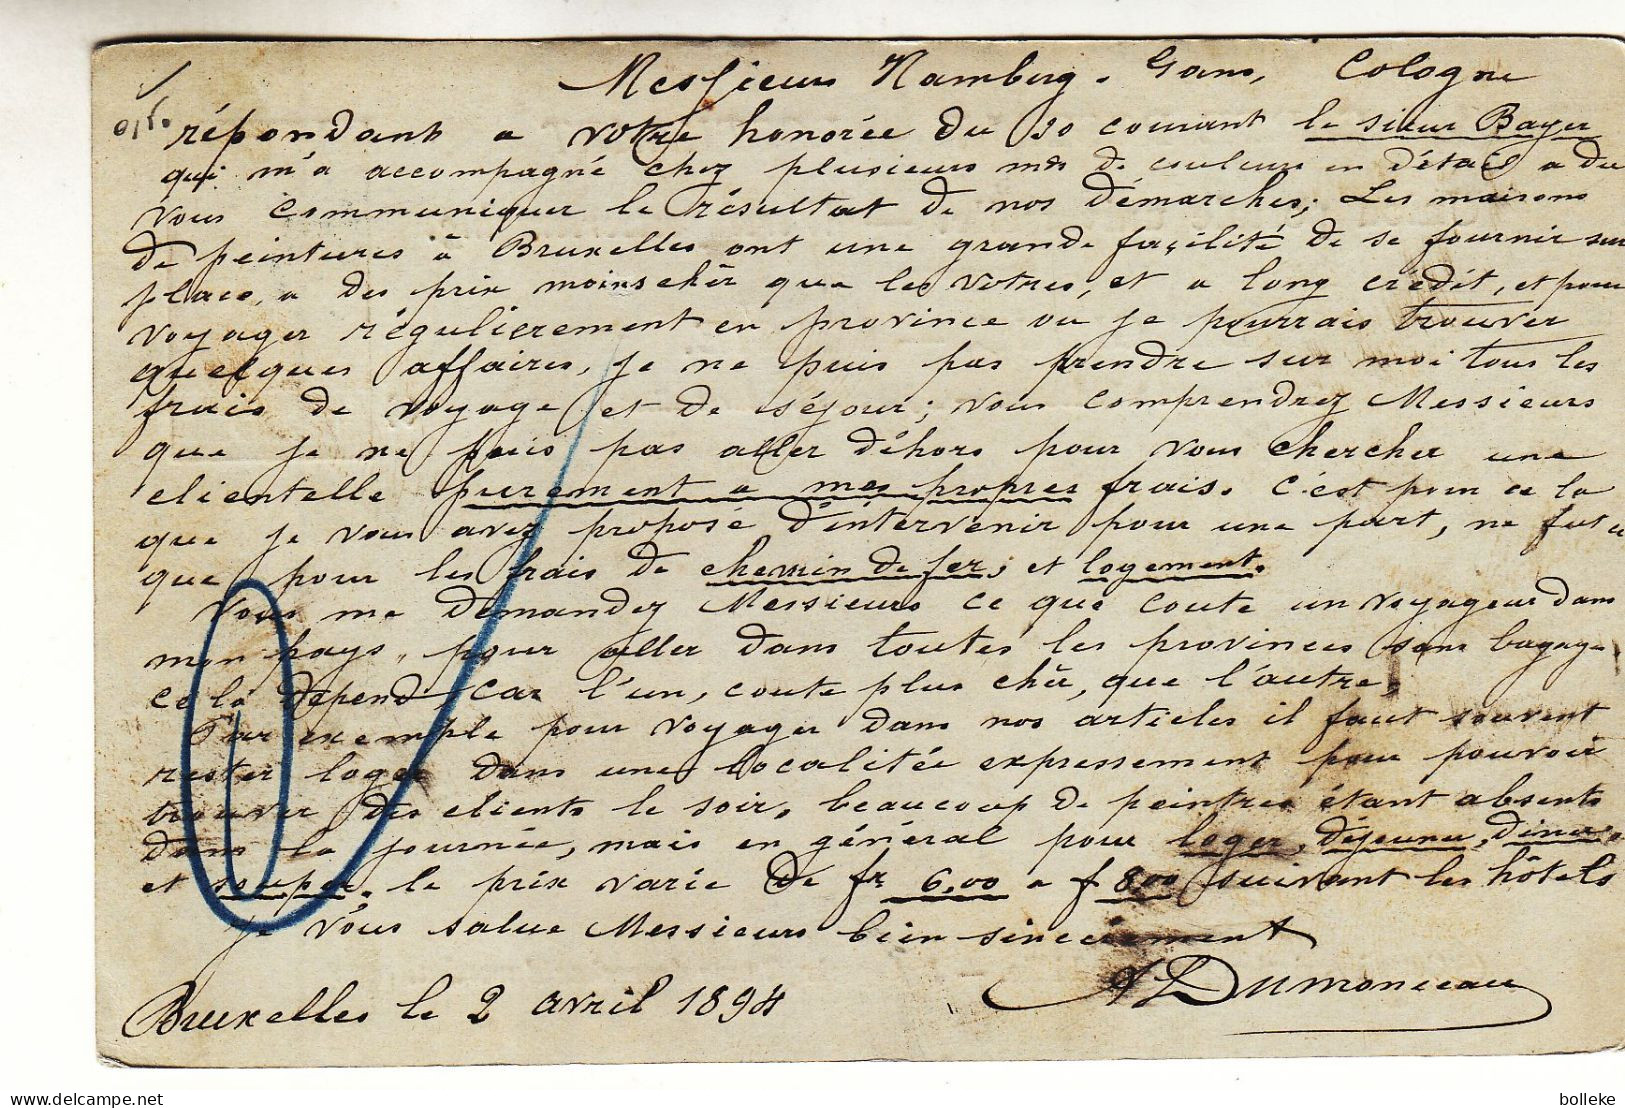 Messieurs Hamberg. Gans, Cologne
répondant a votre honorée du 30 courant le sieur Bayer
qui m'a accompagné chez plusieurs mds de couleurs en détail a du
vous communiquer le résultat de nos démarches; Les maisons
de peintures à Bruxelles ont une grande façilité de se fournir sur
place, a des prix moins chèr que les votres, et a long crédit, et pour
voyager régulièrement en province ou je pourrais trouver
quelques affaires, je ne puis pas prendre sur moi tous les
frais de voyage et de séjour; vous comprendrez Messieurs
que je ne puis pas aller déhors pour vous chercher une
clientelle purement a mes propres frais. C'est pour ce la
que je vous avez proposé d'intervenir pour une part, ne fut ce
que pour les frais de chemin de fer, et logement.
Vous me demandez Messieurs ce que coute un voyageur dans
mon pays, pour aller dans toutes les provinces sans bagage
ce la dépend, car l'un, coute plus chèr, que l'autre,
Par exemple pour voyager dans nos articles il faut souvent
rester loger dans une localitée expressement pour pouvoir
trouver des clients le soir, beaucoup de peintres étant absents
dans la journée, mais en général pour loger, déjeuner, diner
et souper, le prix varie de fr 6,00 a f 8,00 suivant les hôtels
je vous salue Messieurs bien sincèrement
Dumonceau
Bruxelles le 2 avril 1894
bolleke